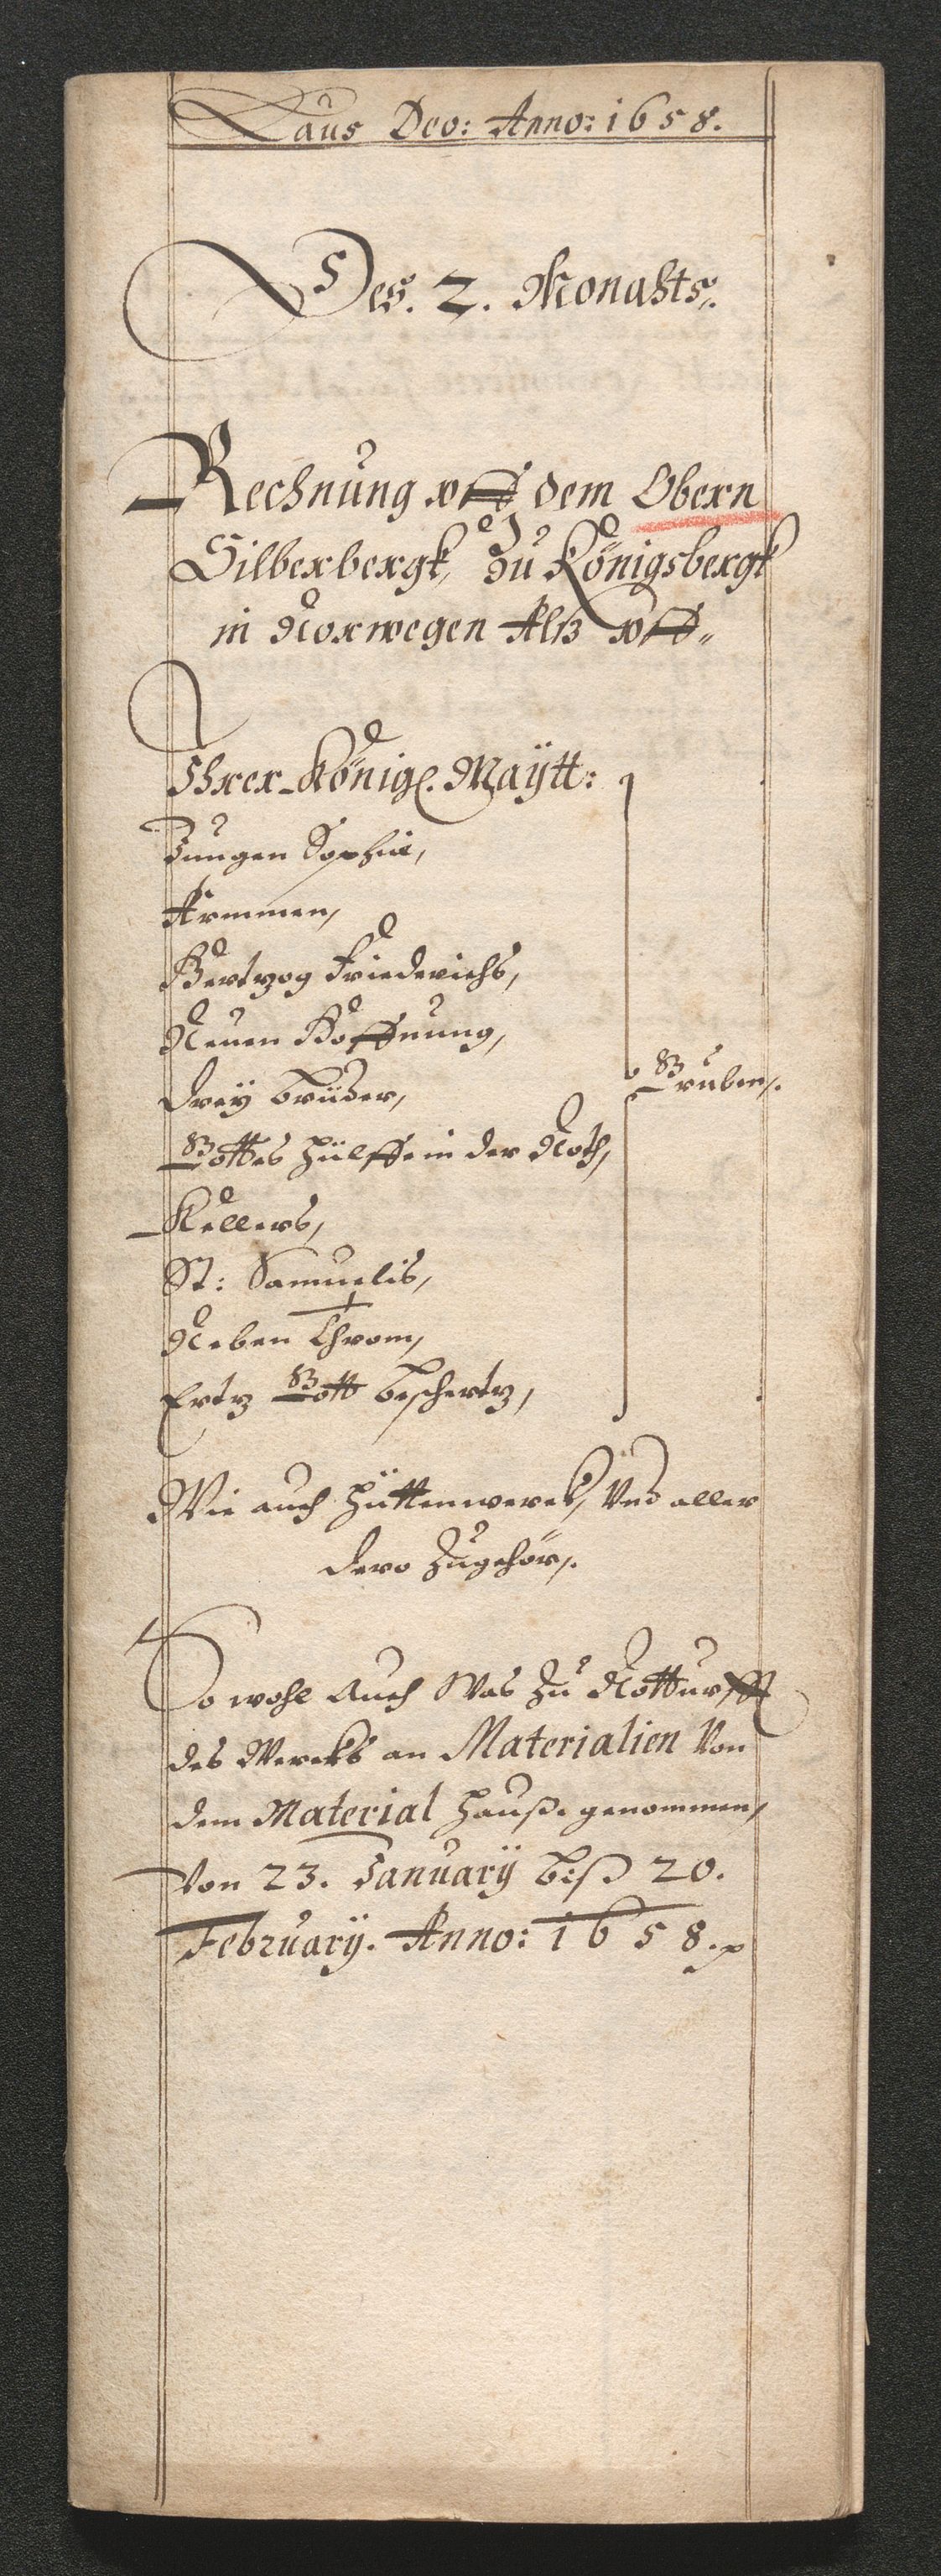 Laus Deo: Anno: 1658.
Des. 2. Monahts.
Rechnung uff dem Obern
Silberbergk, Zu Königsbergk
in Norwegen Alß uff,,
Ihrer Königl. Maÿtt:
Jungen Sophie,
Armmen,
Hertzog Friederichs,
Neuen Hoffnung,
Dreÿ brüder,
Gruben.
Gottes hülffe in der Noth,
Kellers,
St: Samuelis,
Neben Throm,
Ertz Gott beschertz,
Wie auch hüttenwerck, Und aller
dero Zugehör.
So wohl Auch Was Zu Notturfft
des Wercks an Materialien Von
dem Material hauße genommen,
Von 23. Januarÿ biß 20.
Februarÿ. Anno: 1658.